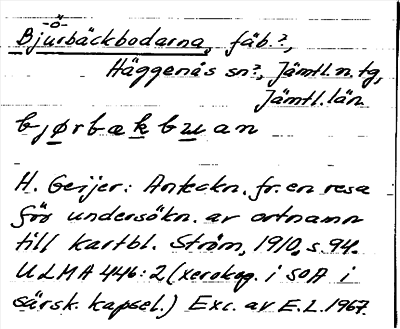 -ö-
Bjurbäckbodarna, fäb.?,
Häggenås sn?, Jämtl.n.tg,
Jämtl. län
bjørbækbuan
H. Geijer: Anteckn. fr. en resa
för undersökn. av ortnamn
till kartbl. Ström, 1910, s. 94.
ULMA 446:2 (xerokog. i SOA i
särsk. kapsel.) Exc. av E.L. 1967.